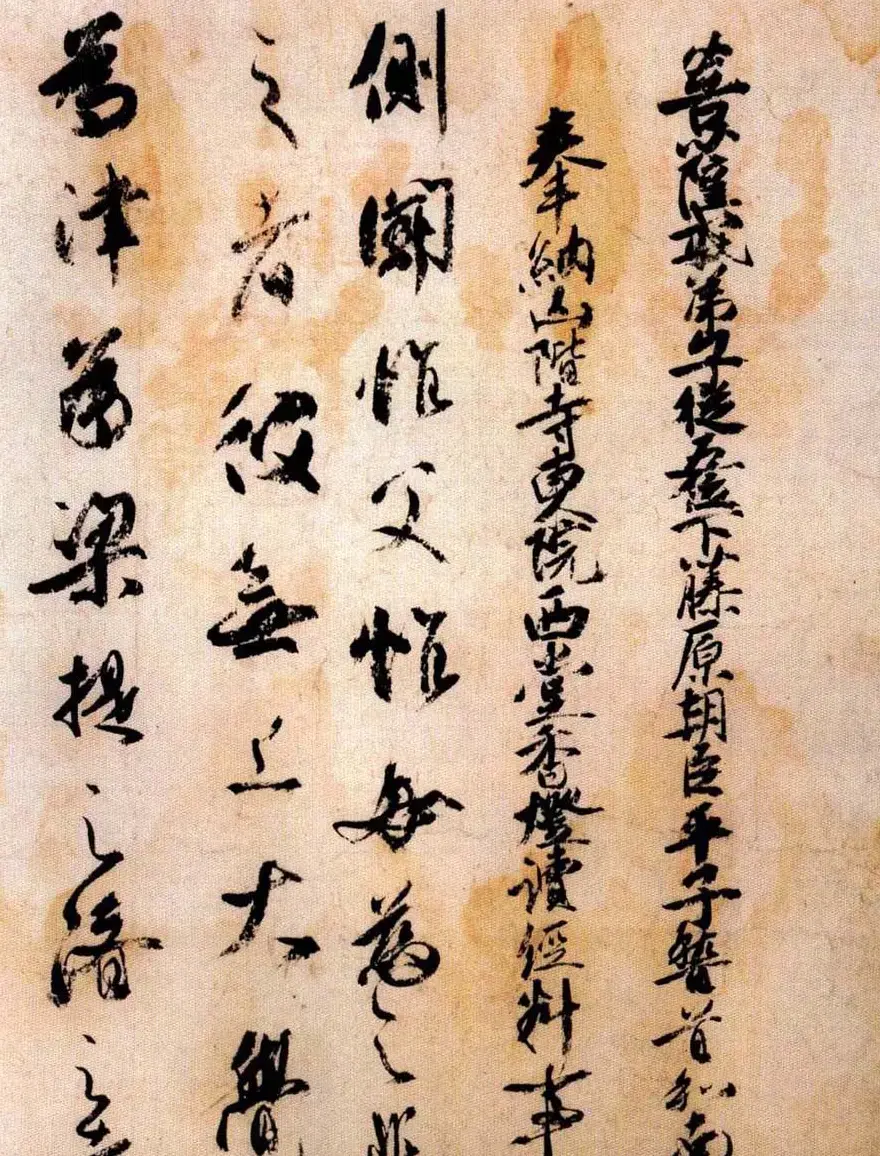 菩薩戒弟子從五位下藤原朝臣平子稽首和南
奉納山階寺東院西堂香燈讀經料事
側聞惟父惟母慈之悲
之者彼無上大覺
為津為梁提之濟之